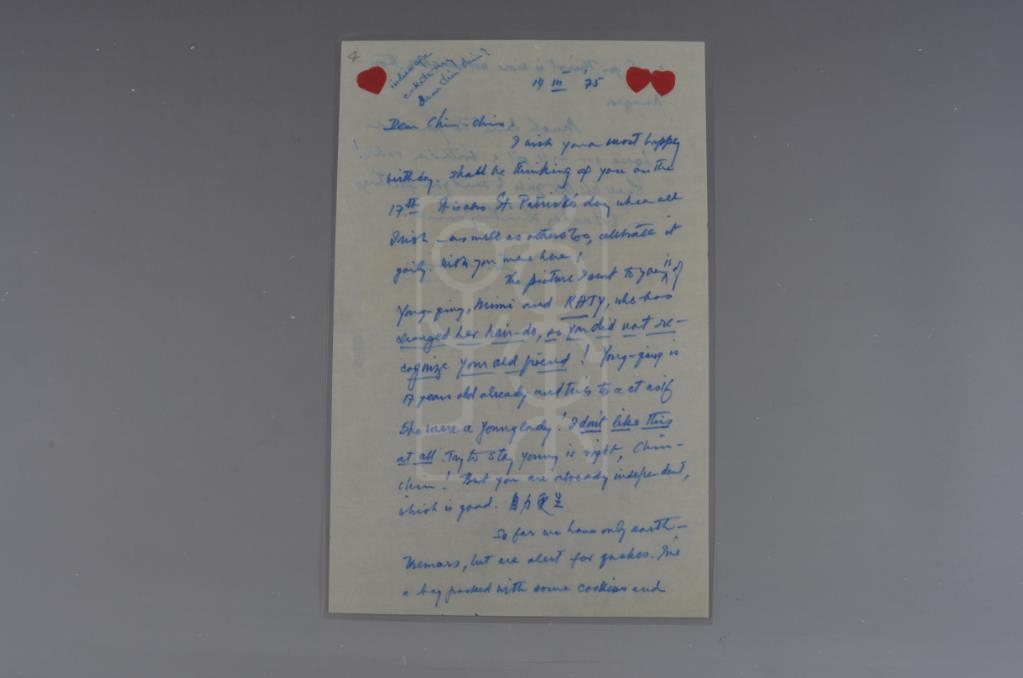 8
Dear Chin-chin!
14 III 75
Dear Chin-chin,
I wish you a most happy
birthday. Shall be thinking of you on the
17th. It is also St. Patrick's day when all
Irish – as well as others too, celebrate it
gaily. Wish you were here!
The picture I sent to you is of
Young-ping, Mimi and KATY, who has
changed her hair-do, so you did not re-
cognize your old friend! Young-ping is
17 years old already and tries to act as if
she were a young lady! I don't like this
at all. Try to stay young is right, Chin-
chin! But you are already independent,
which is good. 自力更生
So far we have only earth-
tremors, but are alert for quakes. I've
a bag packed with some cookies and